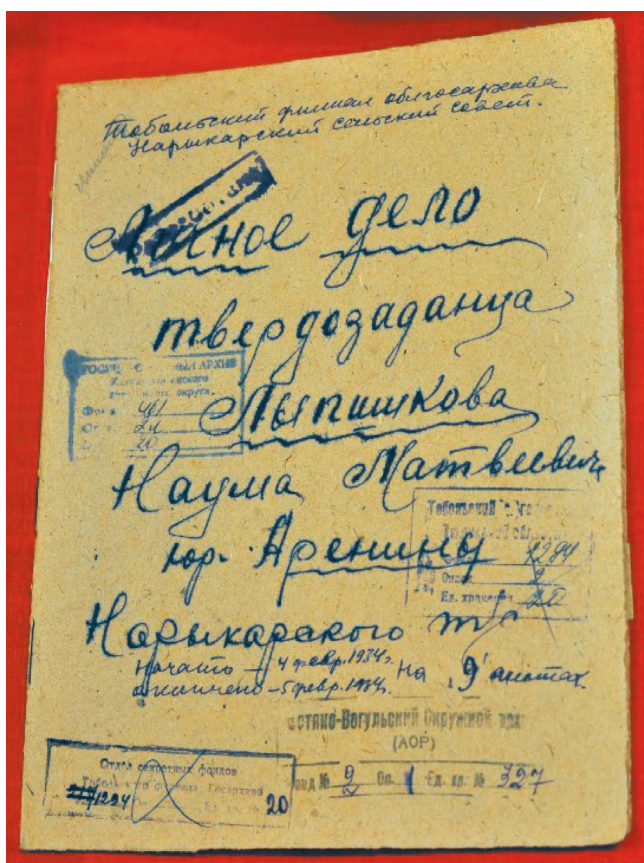 Тобольский филиал облгосархива
Нарыкарский сельский совет.
Личное дело
твердозаданца
Лыпишкова
Наума Матвеевич
юр. Аренины
Нарыкарского т/с
Начато – 4 февр. 1934 г.
окончено – 5 февр. 1934.
на 9 листах.
ГОСУДАРСТВЕННЫЙ АРХИВ
округа
Фонд 461
Оп. 2л
20
Тобольский
Тюменской области
1284
Опись 2
Ед. хранения 20
Остяко-Вогульский Окружной
(АОР)
Фонд № 2 Оп. 1 Ед. хр. № 327
Отдел секретных фондов
Тобольского филиала Госархива
1294
Ед. хр. № 20